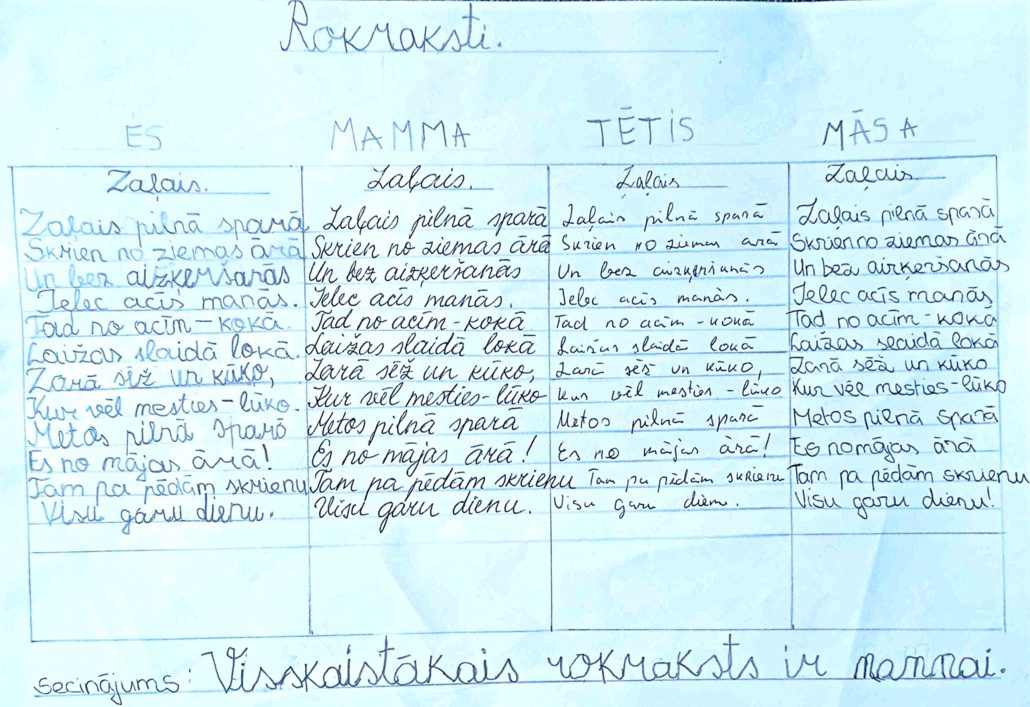 Rokraksti.
ES MAMMA TĒTIS MĀSA
Zaļais. Zaļais. Zaļais Zaļais
Zaļais pilnā sparā Zaļais pilnā sparā Zaļais pilnā sparā Zaļais pilnā sparā
Skrien no ziemas ārā Skrien no ziemas ārā Skrien no ziemas ārā Skrien no ziemas ārā
Un bez aizķeršanās Un bez aizķeršanās Un bez aizķeršanās Un bez aizķeršanās
Ielec acīs manās. Ielec acīs manās. Ielec acīs manās. Ielec acīs manās
Tad no acīm - kokā. Tad no acīm - kokā Tad no acīm - kokā Tad no acīm - kokā
Laižas slaidā lokā. Laižas slaidā lokā Laižas slaidā lokā Laižas slaidā lokā
Zarā sēž un kūko, Zarā sēž un kūko, Zarā sēž un kūko, Zarā sēž un kūko
Kur vēl mesties - lūko. Kur vēl mesties - lūko Kur vēl mesties - lūko Kur vēl mesties - lūko
Metos pilnā sparā Metos pilnā sparā Metos pilnā sparā Metos pilnā sparā
Es no mājas ārā! Es no mājas ārā! Es no mājas ārā! Es no mājas ārā
Tam pa pēdām skrienu Tam pa pēdām skrienu Tam pa pēdām skrienu Tam pa pēdām skrienu
Visu garu dienu. Visu garu dienu. Visu garu dien. Visu garu dienu!
Secinājums: Visskaistākais rokraksts ir mammai.